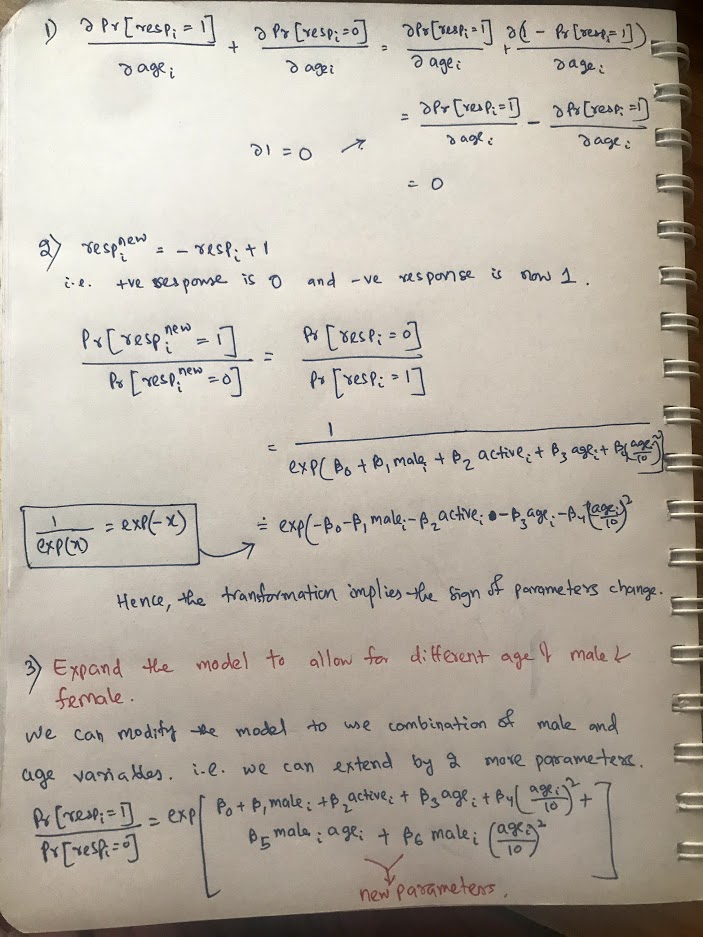 1) ∂Pr[resp_i = 1]/∂age_i + ∂Pr[resp_i=0]/∂age_i = ∂Pr[resp_i=1]/∂age_i + ∂(1 - Pr[resp_i=1])/∂age_i
= ∂Pr[resp_i=1]/∂age_i - ∂Pr[resp_i=1]/∂age_i
∂1 = 0 ↗
= 0
2) resp_i^new = - resp_i + 1
i.e. +ve response is 0 and -ve response is now 1.
Pr[resp_i^new = 1]/Pr[resp_i^new = 0] = Pr[resp_i = 0]/Pr[resp_i = 1]
= 1/exp(β_0 + β_1 male_i + β_2 active_i + β_3 age_i + β_4(age_i/10)^2)
1/exp(x) = exp(-x) → = exp(-β_0-β_1 male_i-β_2 active_i -β_3 age_i -β_4(age_i/10)^2
Hence, the transformation implies the sign of parameters change.
3) Expand the model to allow for different age & male &
female.
We can modify the model to use combination of male and
age variables. i.e. we can extend by 2 more parameters.
Pr[resp_i=1]/Pr[resp_i=0] = exp[β_0 + β_1 male_i + β_2 active_i + β_3 age_i + β_4(age_i/10)^2 +
β_5 male_i age_i + β_6 male_i (age_i/10)^2]
new parameters.